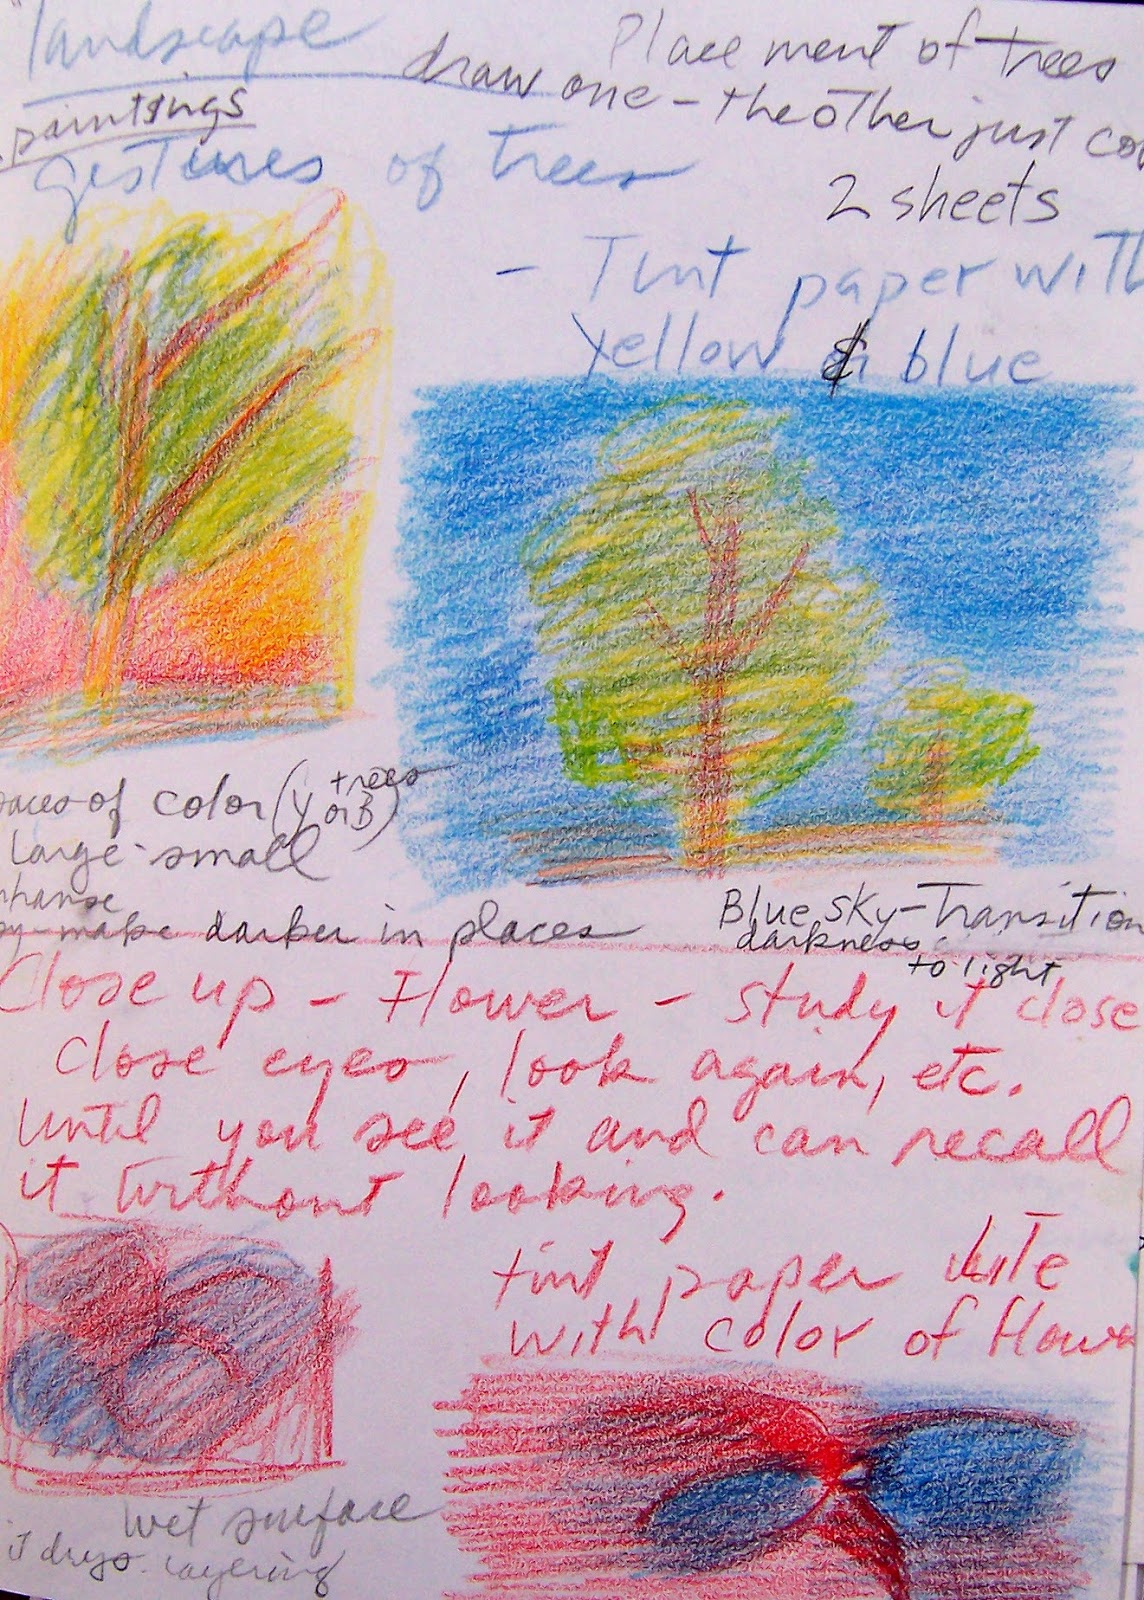 "landscape
paintings
Placement of trees
draw one - the other just co
gestures of trees
2 sheets
- Tint paper with
yellow & blue
paces of color (y or B) trees
large - small
nhanse
py - make darker in places
Blue sky - Transition
darkness
to light
Close up - Flower - study it close
close eyes, look again, etc.
until you see it and can recall
it without looking.
tint paper
with color of flowe
wet surface
it drys. layering